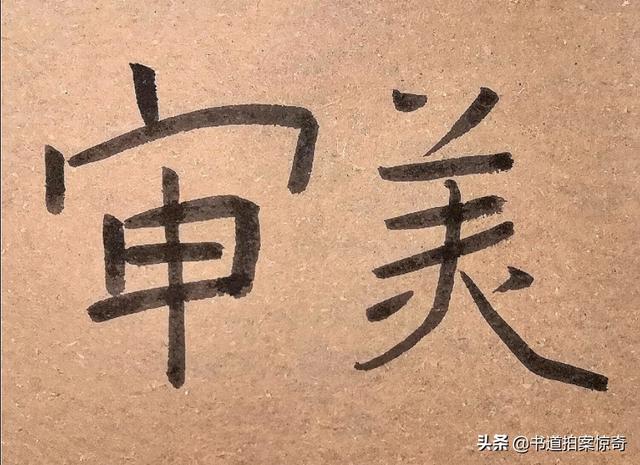 审美
头条 @书道拍案惊奇